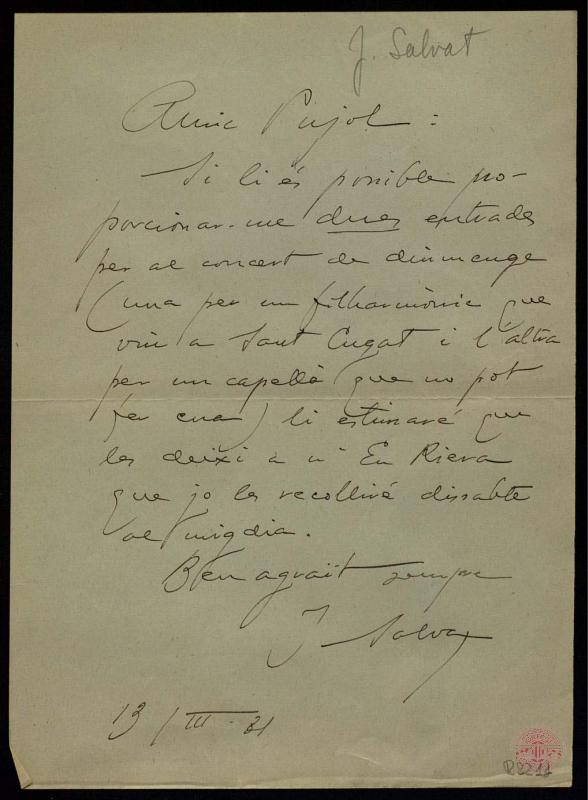 J. Salvat
Amic Pujol :
Si li és possible pro-
porcionar-me dues entrades
per al concert de diumenge
(una per un filharmònic que
viu a Sant Cugat i l'altra
per un capellà que no pot
fer cua) li estimaré que
les deixi a En Riera
que jo les recolliré dissabte
al migdia.
Ben agraït sempre
J Salvat
13 / III - 31